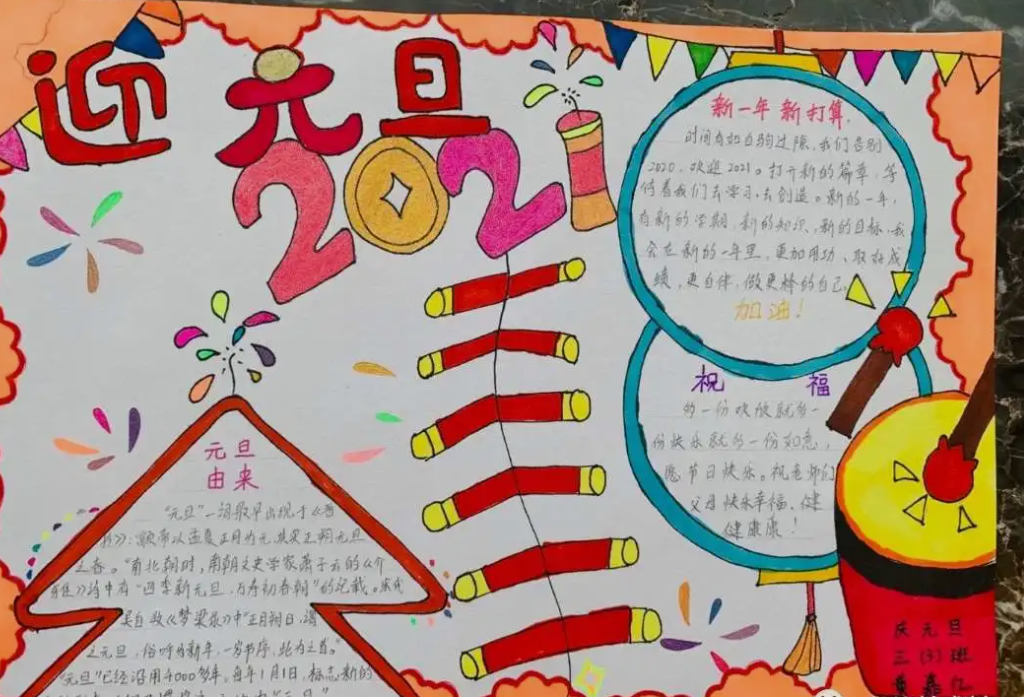 迎元旦
2021
新一年 新打算
时间有如白驹过隙,我们告别
2020,欢迎2021。打开新的篇章,等
待着我们去学习,去创造。新的一年,
有新的学期,新的知识,新的目标,我
会在新的一年里,更加用功、取好成
绩,更自律,做更棒的自己。
加油!
祝 福
多一份欢欣就多一
份快乐就多一份如意,
愿节日快乐。祝老师们
父母快乐幸福,健
健康康!
元旦
由来
“元旦”一词最早出现于《晋
书》:颛帝以孟夏正月为元,其实正朔元旦
之春。”南北朝时,南朝文史学家萧子云的《介
雅》诗中有“四季新元旦,万寿初春朝”的记载。宋代
吴自牧《梦梁录》中“正月朔日,谓
之元旦,俗呼为新年,一岁节序,此为之首。”
“元旦”已经沿用4000多年。每年1月1日,标志新的
庆元旦
三(3)班